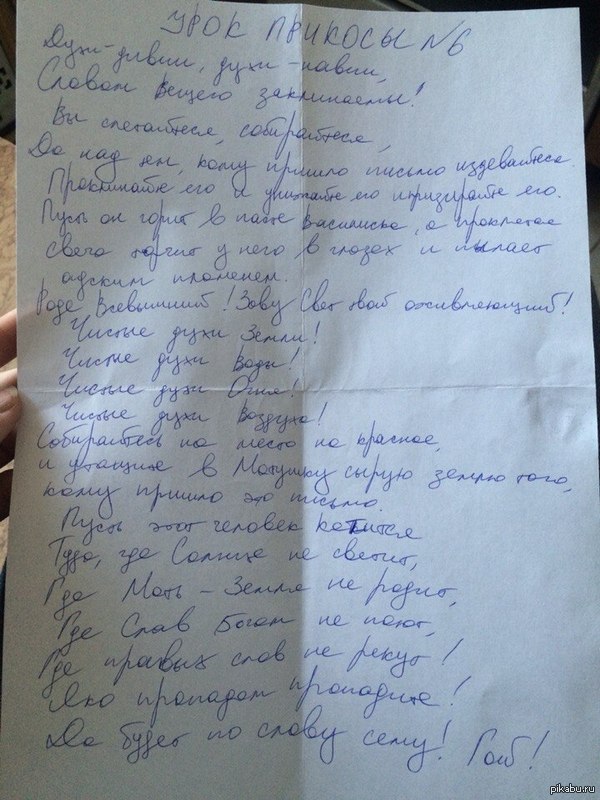 УРОК ПРИКОСЫ №6
Духи-дивии, духи-навии,
Словом Вещего заклинаемы!
Вы слетайтеся, собирайтеся,
Да над тем, кому пришло письмо издевайтеся.
Проклинайте его и унижайте его и презирайте его.
Пусть он горит в пасти Василиска, а проклятая
свеча торчит у него в глазах и пылает
адским пламенем.
Роде Всевышний! Зову Свет твой оживляющий!
Чистые духи Земли!
Чистые духи Воды!
Чистые духи Огня!
Чистые духи Воздуха!
Собирайтесь на место на красное,
и утащите в Матушку сырую землю того,
кому пришло это письмо.
Пусть этот человек катится
Туда, где Солнце не светит,
Где Мать-Земля не родит,
Где Слав Богам не поют,
Где правых слов не рекут!
Яко пропадом пропадите!
Да будет по слову сему! Гой!
pikabu.ru